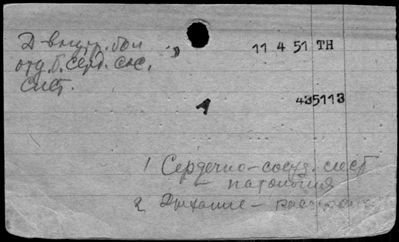 Д-внутр. бол
отд. б. серд. сос.
сист.
11 4 51 TH
1
435113
1 Сердечно-сосуд. сист
патология
2 Дыхание -